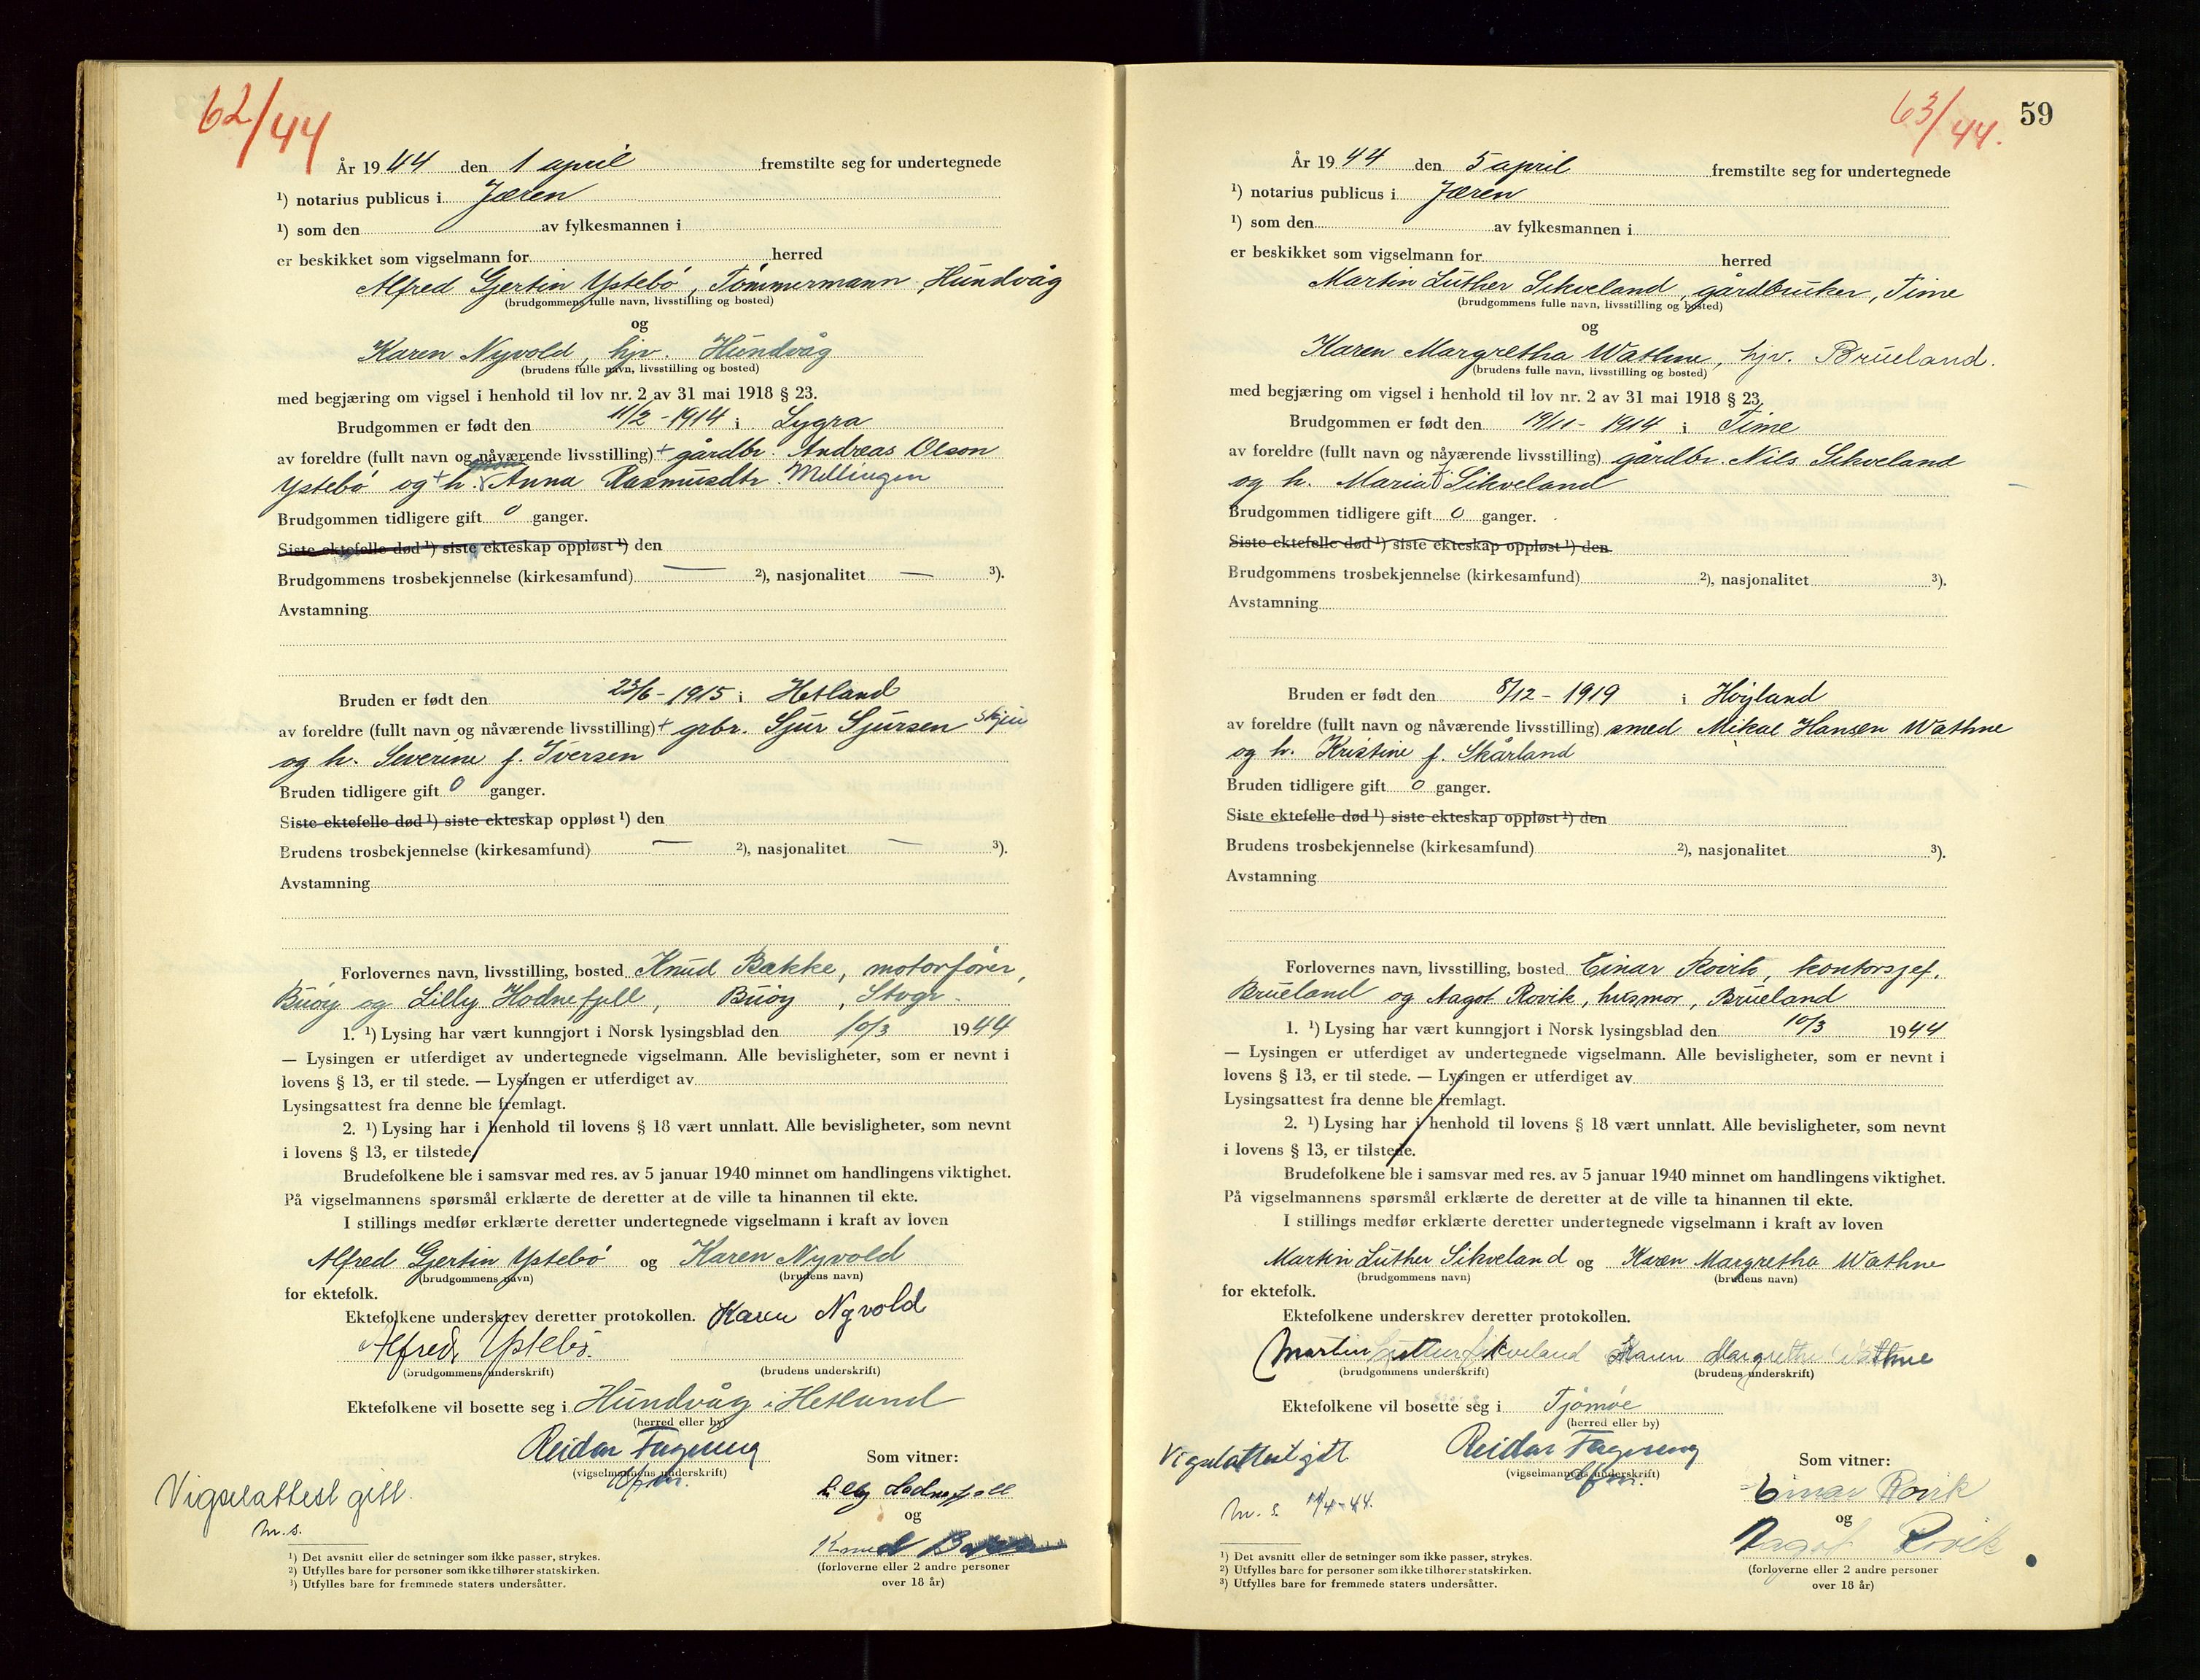 62/44
År 1944 den 1 april fremstilte seg for undertegnede
¹) notarius publicus i Jæren
¹) som den av fylkesmannen i
er beskikket som vigselmann for herred
Alfred Gjertin Ystebö, Tömmermann, Hundvåg
(brudgommens fulle navn, livsstilling og bosted)
og
Karen Nyvold, hjv. Hundvåg
(brudens fulle navn, livsstilling og bosted)
med begjæring om vigsel i henhold til lov nr. 2 av 31 mai 1918 § 23.
Brudgommen er født den 11/2 - 1914 i Lygra
av foreldre (fullt navn og nåværende livsstilling) + gårdbr. Andreas Olson
Ystebö og + h. Anna Rasmusdtr. Mellingen
Brudgommen tidligere gift 0 ganger.
Siste ektefelle død ¹) siste ekteskap oppløst ¹) den
Brudgommens trosbekjennelse (kirkesamfund) — ²), nasjonalitet — ³).
Avstamning
Bruden er født den 23/6 - 1915 i Hetland
av foreldre (fullt navn og nåværende livsstilling) + grbr. Sjur Sjursen Skjen
og h. Severine f. Iversen
Bruden tidligere gift 0 ganger.
Siste ektefelle død ¹) siste ekteskap oppløst ¹) den
Brudens trosbekjennelse (kirkesamfund) — ²), nasjonalitet — ³).
Avstamning
Forlovernes navn, livsstilling, bosted Knud Bakke, motorförer,
Buöy og Lilly Hodnefjell, Buöy, Stvgr.
1. ¹) Lysing har vært kunngjort i Norsk lysingsblad den 10/3 1944
— Lysingen er utferdiget av undertegnede vigselmann. Alle bevisligheter, som er nevnt i
lovens § 13, er til stede. — Lysingen er utferdiget av
Lysingsattest fra denne ble fremlagt.
2. ¹) Lysing har i henhold til lovens § 18 vært unnlatt. Alle bevisligheter, som nevnt
i lovens § 13, er tilstede.
Brudefolkene ble i samsvar med res. av 5 januar 1940 minnet om handlingens viktighet.
På vigselmannens spørsmål erklærte de deretter at de ville ta hinannen til ekte.
I stillings medfør erklærte deretter undertegnede vigselmann i kraft av loven
Alfred Gjertin Ystebö og Karen Nyvold
(brudgommens navn) (brudens navn)
for ektefolk.
Ektefolkene underskrev deretter protokollen. Karen Nyvold
Alfred Ystebö.
(brudgommens underskrift) (brudens underskrift)
Ektefolkene vil bosette seg i Hundvåg i Hetland
(herred eller by)
Reidar
(vigselmannens underskrift)
Som vitner:
Vigselattest gitt.
m.s.
Lilly Hodnefjell
og
Knud
(forloverne eller 2 andre personer
over 18 år)
¹) Det avsnitt eller de setninger som ikke passer, strykes.
²) Utfylles bare for personer som ikke tilhører statskirken.
³) Utfylles bare for fremmede staters undersåtter.
63/44.
59
År 1944 den 5 april fremstilte seg for undertegnede
¹) notarius publicus i Jæren
¹) som den av fylkesmannen i
er beskikket som vigselmann for herred
Martin Luther Sikveland, gårdbruker, Time
(brudgommens fulle navn, livsstilling og bosted)
og
Karen Margretha Wathne, hjv. Brueland.
(brudens fulle navn, livsstilling og bosted)
med begjæring om vigsel i henhold til lov nr. 2 av 31 mai 1918 § 23.
Brudgommen er født den 19/11 - 1914 i Time
av foreldre (fullt navn og nåværende livsstilling) gårdbr. Nils Sikveland
og h. Maria f. Sikveland
Brudgommen tidligere gift 0 ganger.
Siste ektefelle død ¹) siste ekteskap oppløst ¹) den
Brudgommens trosbekjennelse (kirkesamfund) ²), nasjonalitet ³).
Avstamning
Bruden er født den 8/12 - 1919 i Höyland
av foreldre (fullt navn og nåværende livsstilling) smed Mikal Hansen Wathne
og h. Kristine f. Skårland
Bruden tidligere gift 0 ganger.
Siste ektefelle død ¹) siste ekteskap oppløst ¹) den
Brudens trosbekjennelse (kirkesamfund) ²), nasjonalitet ³).
Avstamning
Forlovernes navn, livsstilling, bosted Einar Rovik, kontorsjef,
Brueland og Aagot Rovik, husmor, Brueland
1. ¹) Lysing har vært kunngjort i Norsk lysingsblad den 10/3 1944
— Lysingen er utferdiget av undertegnede vigselmann. Alle bevisligheter, som er nevnt i
lovens § 13, er til stede. — Lysingen er utferdiget av
Lysingsattest fra denne ble fremlagt.
2. ¹) Lysing har i henhold til lovens § 18 vært unnlatt. Alle bevisligheter, som nevnt
i lovens § 13, er tilstede.
Brudefolkene ble i samsvar med res. av 5 januar 1940 minnet om handlingens viktighet.
På vigselmannens spørsmål erklærte de deretter at de ville ta hinannen til ekte.
I stillings medfør erklærte deretter undertegnede vigselmann i kraft av loven
Martin Luther Sikveland og Karen Margretha Wathne
(brudgommens navn) (brudens navn)
for ektefolk.
Ektefolkene underskrev deretter protokollen.
Martin Luther Sikveland Karen Margrethe Wathne
(brudgommens underskrift) (brudens underskrift)
Ektefolkene vil bosette seg i Tjömöe
(herred eller by)
Vigselattest gitt Reidar
(vigselmannens underskrift)
m.s. 11/4-44.
Som vitner:
Einar Rovik
og
Aagot Rovik
(forloverne eller 2 andre personer
over 18 år)
¹) Det avsnitt eller de setninger som ikke passer, strykes.
²) Utfylles bare for personer som ikke tilhører statskirken.
³) Utfylles bare for fremmede staters undersåtter.